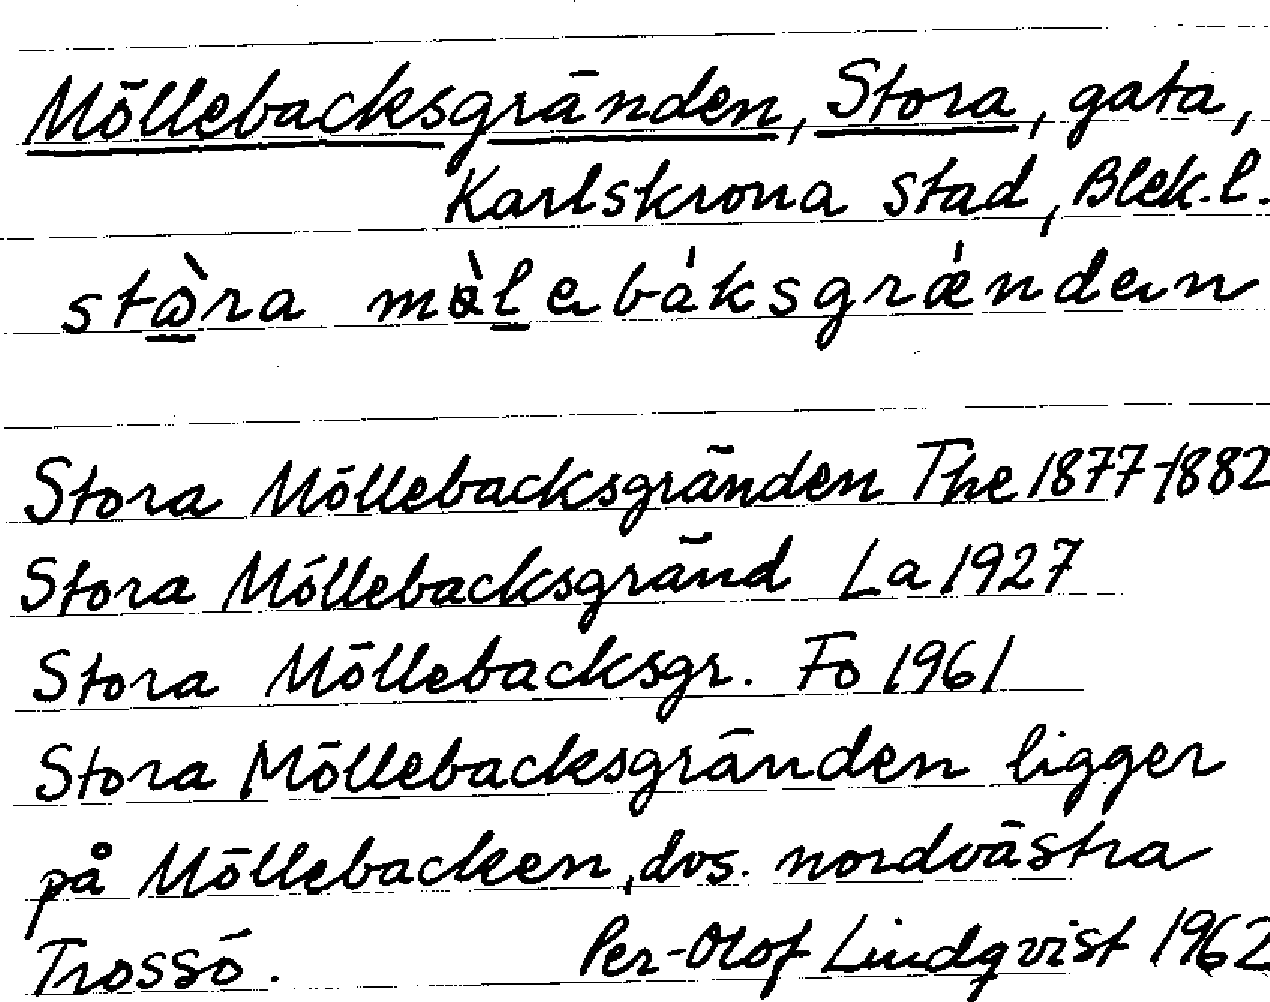 Möllebacksgränden, Stora, gata,
Karlskrona stad, Blek.l.
Stora Möllebacksgränden The 1877-1882
Stora Möllebacksgränd La 1927
Stora Möllebacksgr. Fo 1961
Stora Möllebacksgränden ligger
på Möllebacken, dvs. nordvästra
Trossö. Per-Olof Lindqvist 1962